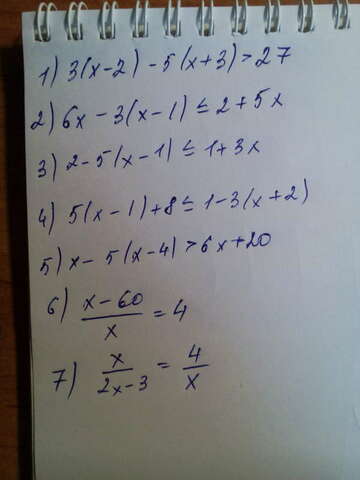 1) 3(x-2) - 5(x+3) > 27
2) 6x - 3(x-1) ≤ 2 + 5x
3) 2-5(x-1) ≤ 1+3x
4) 5(x-1)+8 ≤ 1-3(x+2)
5) x - 5(x-4) > 6x+20
6) (x-60)/x = 4
7) x/(2x-3) = 4/x